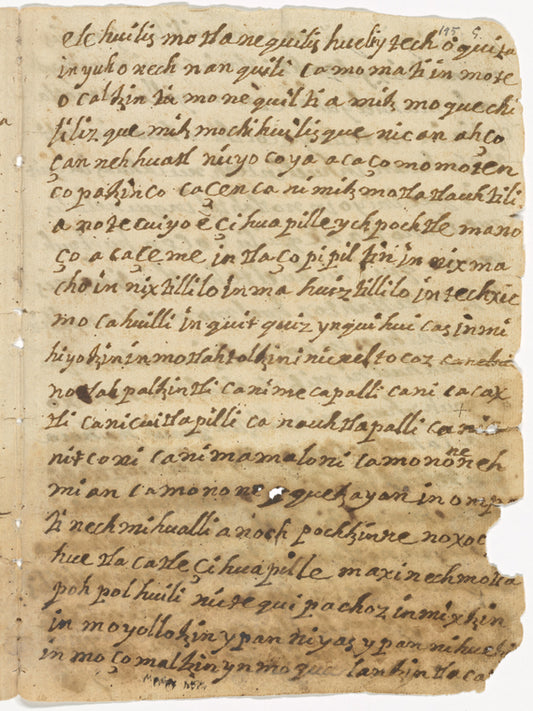 195 5
elc huilis motlanequilis huel ytech oquiza
in yuh onech nanquili camo mati in mote
o caltzin tla mo nequiltia mitz moquechi
tiliz que mitz mochihuilis que nican ahço
çan nehhuatl niyo coya acaçomo moten
çopatzinco caçenca nimitzmotlatlauhtili
a notecuiyo è çihuapille ychpochtle mano
ço acaçeme in tlaçopipiltzin in nixma
cho in nixtillilo in ma huiztillilo in techxic
mocahuilli in quitquiz yn quihuicas in mi
hiyotzin in motlahtoltzin i nican eltocoz
notlalpaltzintli canimecapalli cani cacax
tli canicuitlapilli ca nauhtlapalli cani
nitconi canimamaloni camononneh
mian camonone queçayan in ompa
ti nechmihualli anoch pochtzinne noxoc
hue tlacatle çihuapille maxinechmotla
pohpolhuili nictequipachoz in mixtzin
in moyollotzin ypan niyas ypan nihuetzi
in moçomaltzin yn moqualantzin tlaca